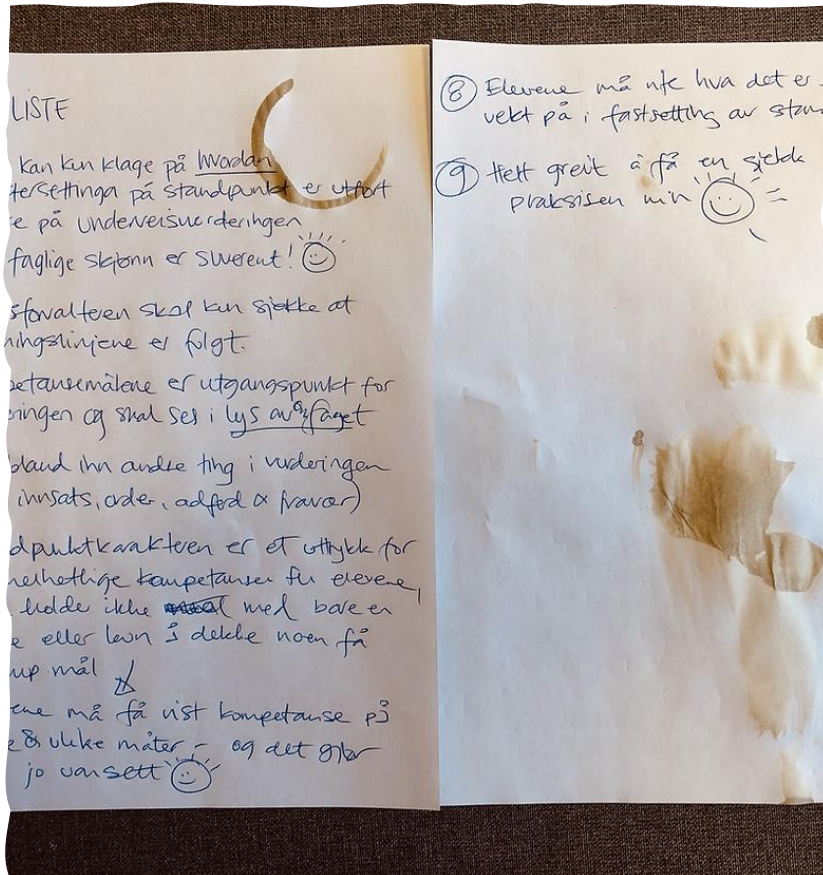 LISTE
kan kun klage på hvordan
tersettinga på standpunkt er utført
e på underveisvurderingen
faglige skjønn er suverent!
sforvalteren skal kun sjekke at
ningslinjene er fulgt.
petansemålene er utgangspunkt for
eringen og skal ses i lys av faget
bland inn andre ting i vurderingen
innsats, orden, adferd & fravær)
dpunktkarakteren er et uttrykk for
helhetlige kompetansen for elevene,
holde ikke med bare en
e eller kun å dekke noen få
mp mål
ene må få vist kompetanse på
e & ulike måter – og det gjør
jo uansett
8 Elevene må vite hva det er
vekt på i fastsetting av stan
9 Helt greit å få en sjekk
praksisen min